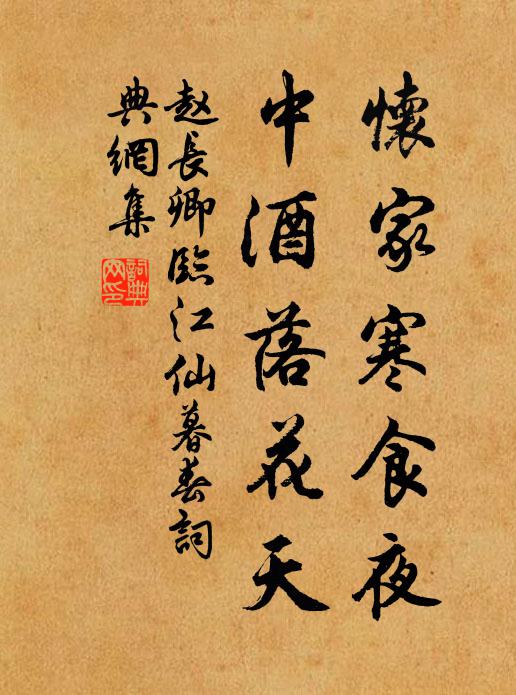 懷家寒食夜
中酒落花天
赵長卿臨江仙暮春詞
典網集
詞典網印